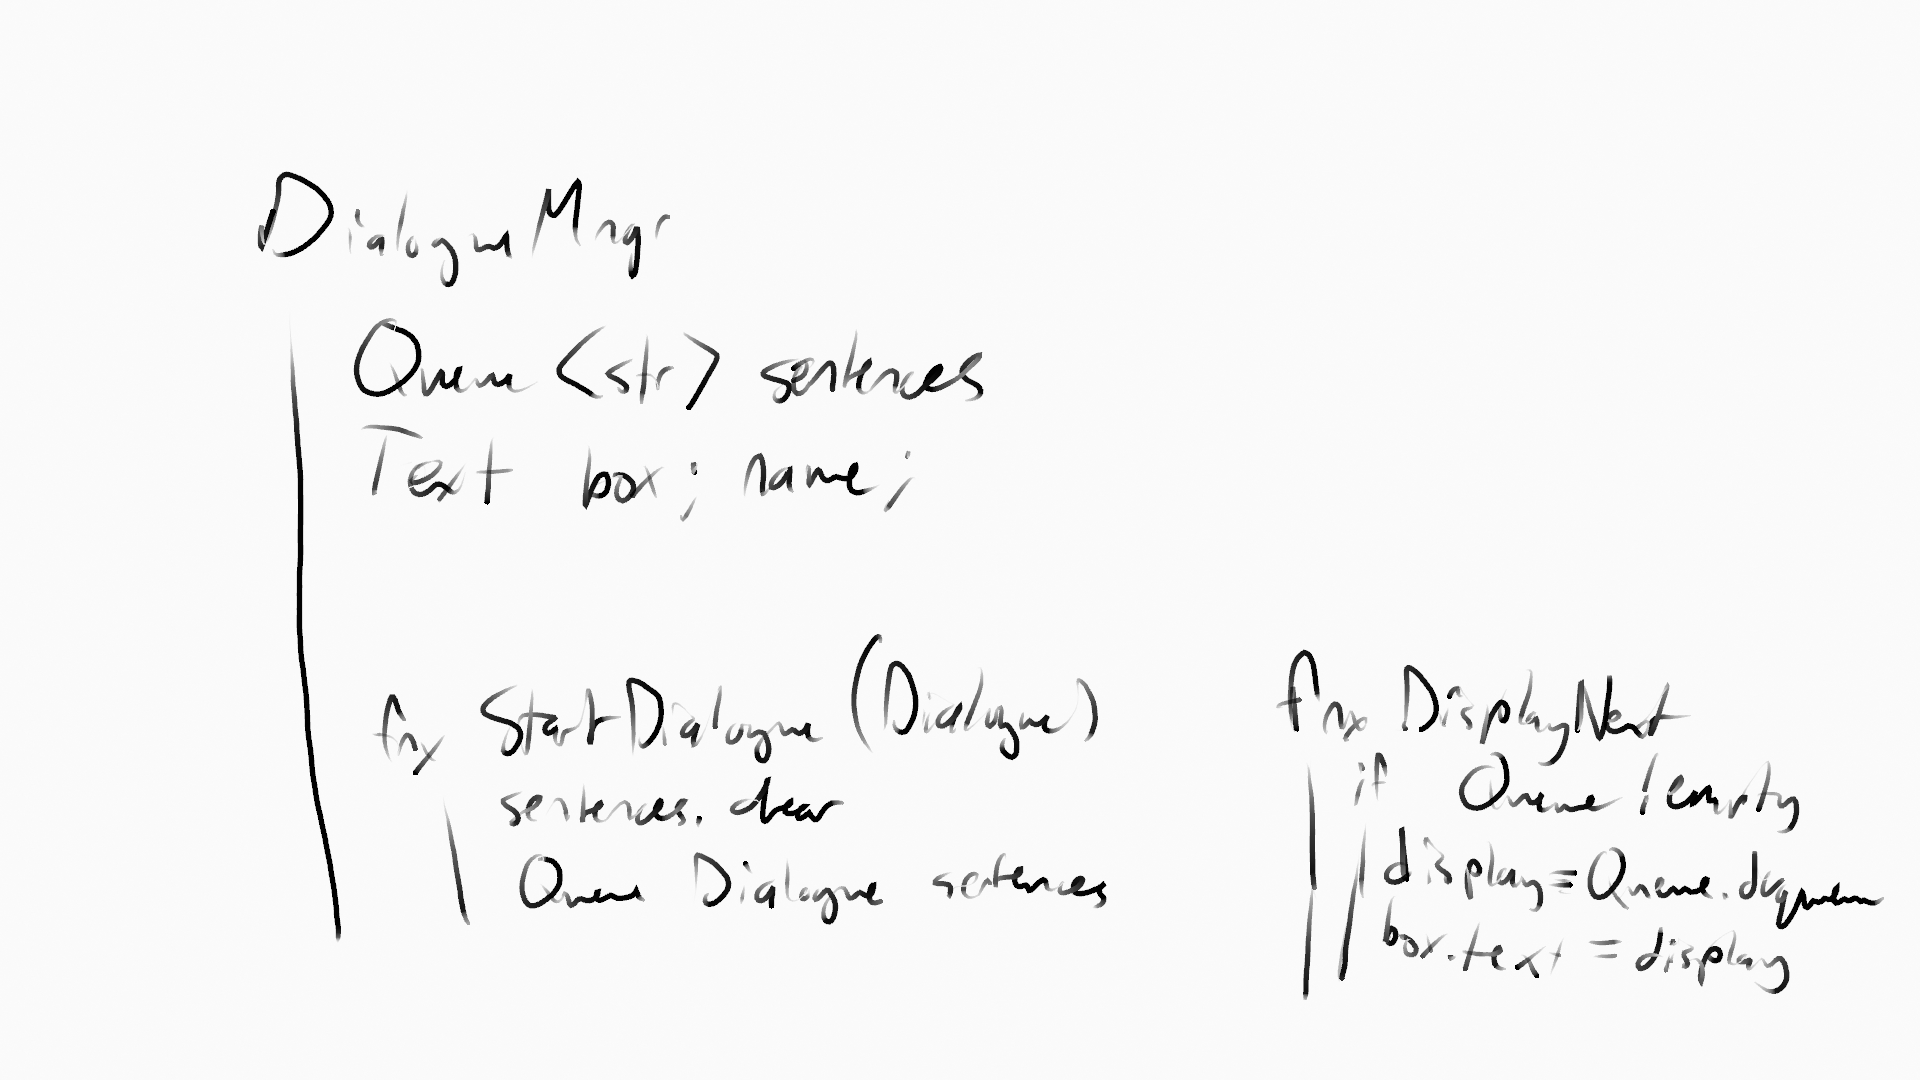 DialogueMngr
Queue <str> sentences
Text box; name;
fnx StartDialogue (Dialogue)
sentences.clear
Queue Dialogue sentences
fnx DisplayNext
if Queue !empty
display=Queue.dequeue
box.text = display